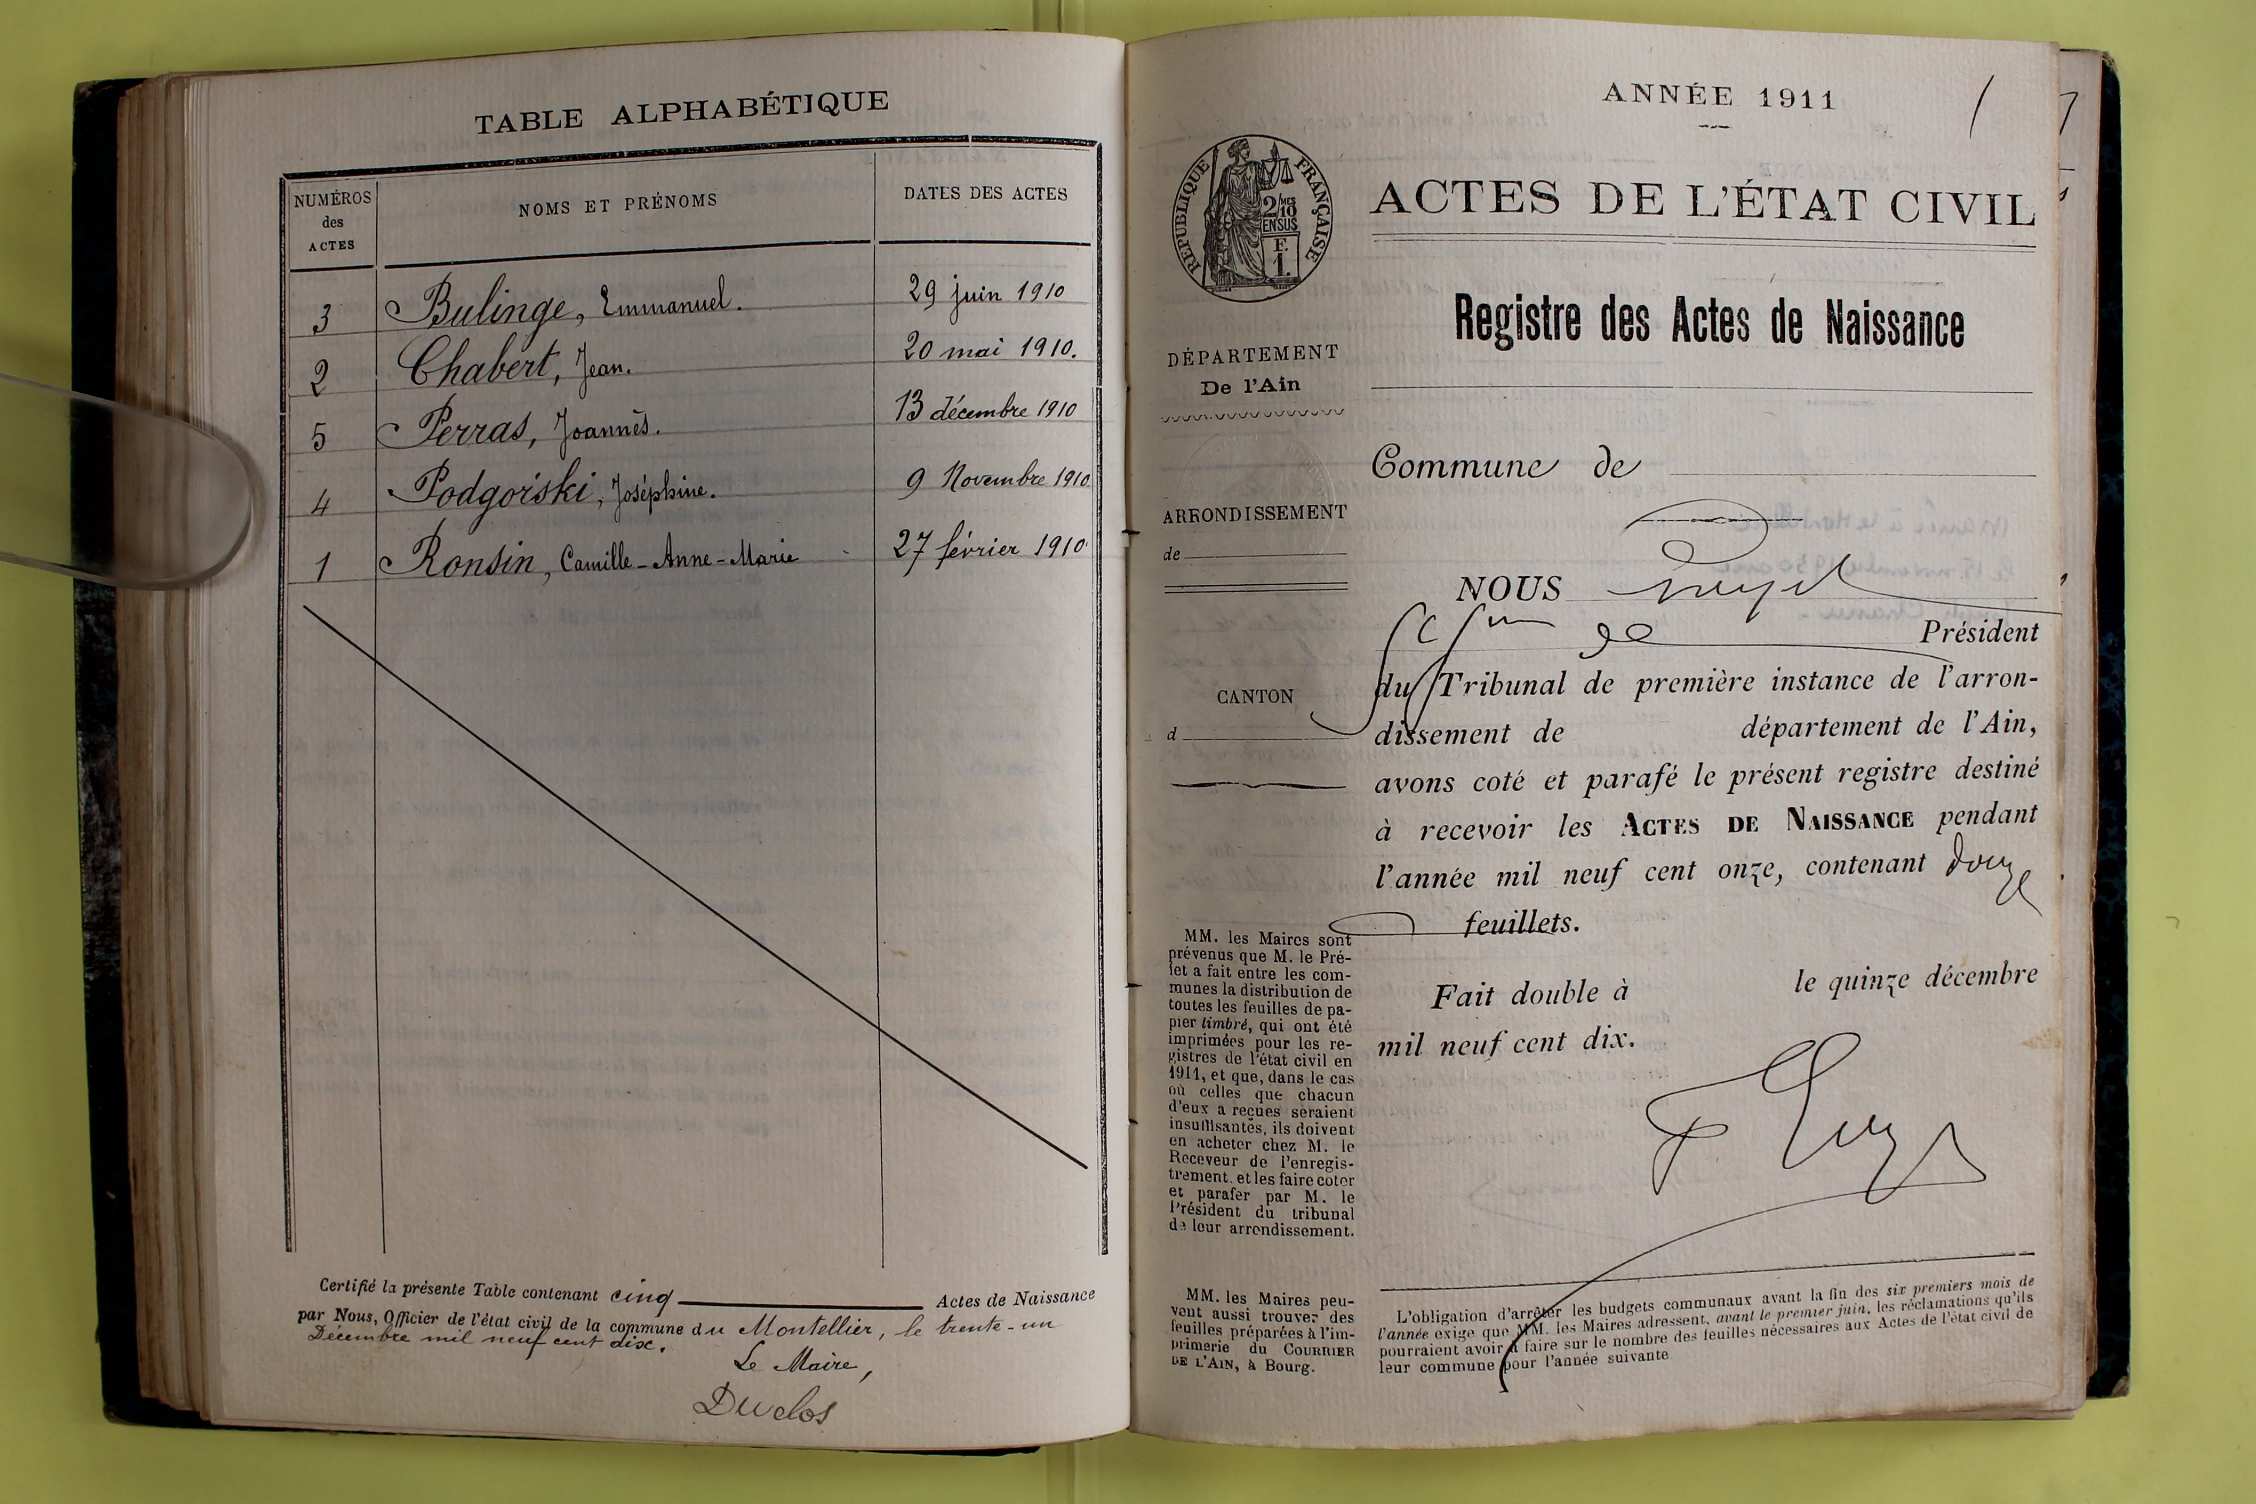 TABLE ALPHABÉTIQUE
NUMÉROS
des
ACTES
NOMS ET PRÉNOMS
DATES DES ACTES
3 Bulinge, Emmanuel. 29 juin 1910
2 Chabert, Jean. 20 mai 1910.
5 Perras, Joannès. 13 décembre 1910
4 Podgorski, Joséphine. 9 Novembre 1910
1 Ronsin, Camille-Anne-Marie 27 février 1910
Certifié la présente Table contenant cinq Actes de Naissance
par Nous, Officier de l'état civil de la commune du Montellier, le trente-un
Décembre mil neuf cent dix.
Le Maire,
Duclos
ANNÉE 1911
RÉPUBLIQUE FRANÇAISE
2/10
MES
EN SUS
F.
1.
DÉPARTEMENT
De l'Ain
ARRONDISSEMENT
de
CANTON
d
MM. les Maires sont
prévenus que M. le Pré-
fet a fait entre les com-
munes la distribution de
toutes les feuilles de pa-
pier timbré, qui ont été
imprimées pour les re-
gistres de l'état civil en
1911, et que, dans le cas
où celles que chacun
d'eux a reçues seraient
insuffisantes, ils doivent
en acheter chez M. le
Receveur de l'enregis-
trement, et les faire coter
et parafer par M. le
Président du tribunal
de leur arrondissement.
MM. les Maires peu-
vent aussi trouver des
feuilles préparées à l'im-
primerie du COURRIER
DE L'AIN, à Bourg.
ACTES DE L'ÉTAT CIVIL
Registre des Actes de Naissance
Commune de
NOUS
Président
du Tribunal de première instance de l'arron-
dissement de département de l'Ain,
avons coté et parafé le présent registre destiné
à recevoir les ACTES DE NAISSANCE pendant
l'année mil neuf cent onze, contenant douze
feuillets.
Fait double à le quinze décembre
mil neuf cent dix.
L'obligation d'arrêter les budgets communaux avant la fin des six premiers mois de
l'année exige que MM. les Maires adressent, avant le premier juin, les réclamations qu'ils
pourraient avoir à faire sur le nombre des feuilles nécessaires aux Actes de l'état civil de
leur commune pour l'année suivante